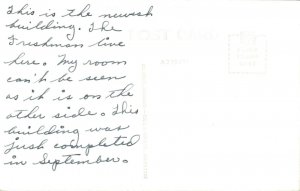 This is the newest
building. The
Freshman live
here. My room
can't be seen
as it is on the
other side. This
building was
just completed
in September.